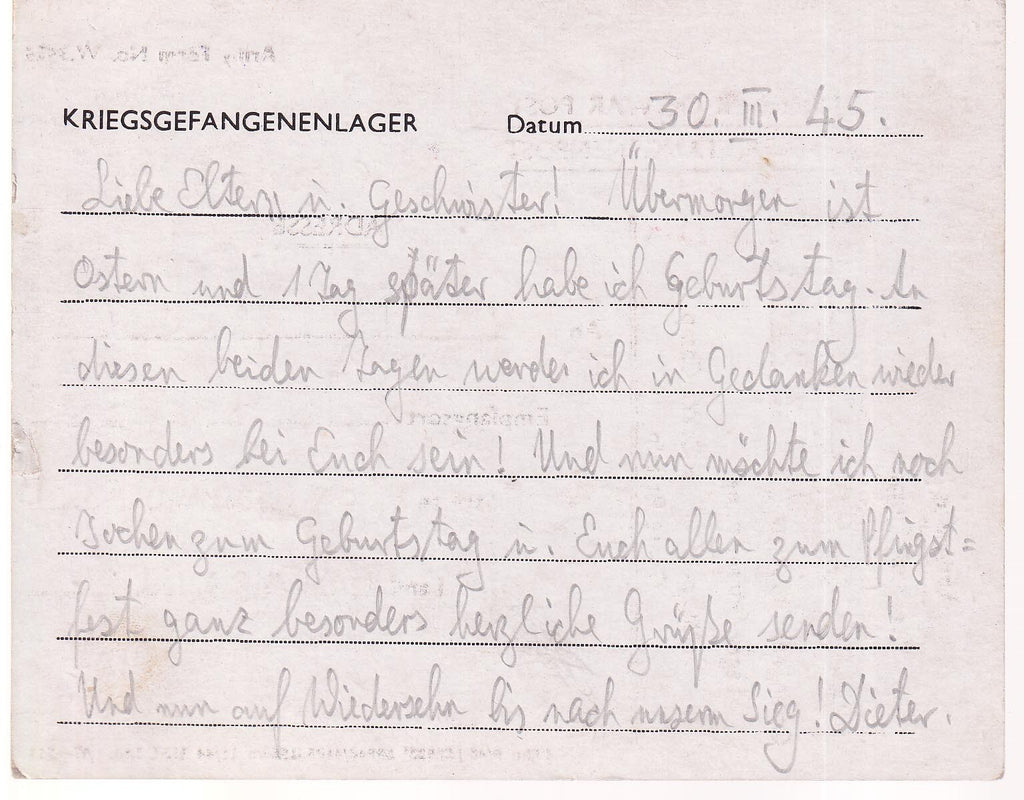 KRIEGSGEFANGENENLAGER Datum 30. III. 45.
Liebe Eltern u. Geschwister! Übermorgen ist
Ostern und 1 Tag später habe ich Geburtstag. An
diesen beiden Tagen werde ich in Gedanken wieder
besonders bei Euch sein! Und nun möchte ich noch
Jochen zum Geburtstag u. Euch allen zum Pfingst=
fest ganz besonders herzliche Grüße senden!
Und nun auf Wiedersehn bis nach unserm Sieg! Dieter.